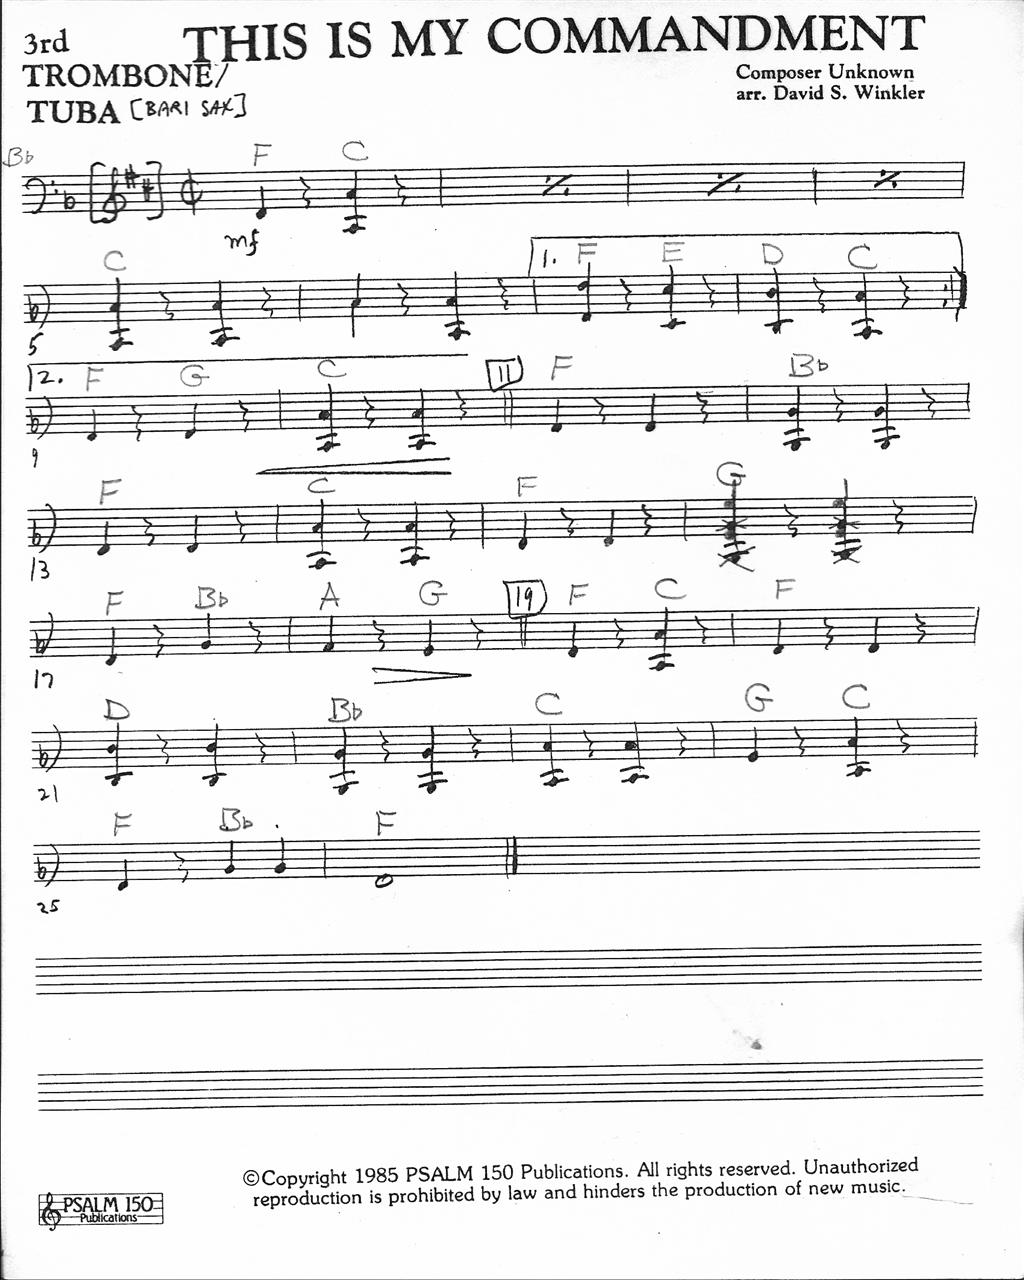 3rd
TROMBONE/
TUBA [BARI SAX]
THIS IS MY COMMANDMENT
Composer Unknown
arr. David S. Winkler
Bb F C
mf
C 1. F E D C
5
2. F G C 11 F Bb
9
F C F G
13
F Bb A G 19 F C F
17
D Bb C G C
21
F Bb F
25
©Copyright 1985 PSALM 150 Publications. All rights reserved. Unauthorized
reproduction is prohibited by law and hinders the production of new music.
PSALM 150
Publications